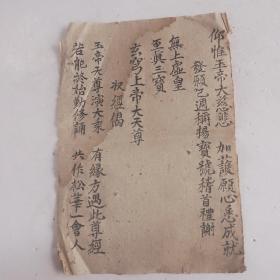 仰惟玉帝大慈悲　加護願心悉成就
發願已週稱揚寶號稽首禮謝
無上虛皇
至真三寶
玄穹上帝大天尊
收經偈
玉帝天尊演大乘　有緣方遇此尊經
若能終始勤修誦　共作松華一會人